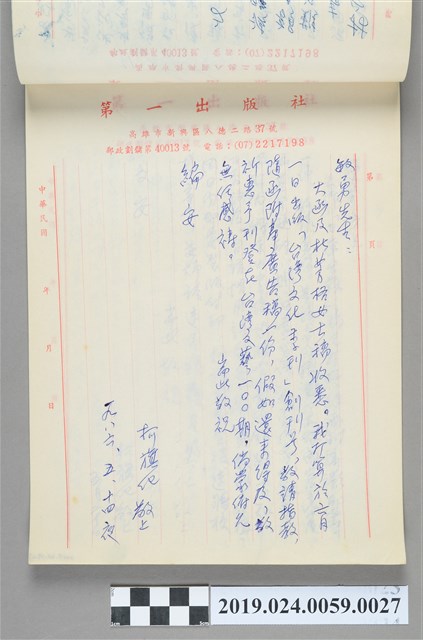 第一出版社
高雄市新興區八德二路37號
郵政劃撥第40013號　電話：(07)2217198
第　頁
敏勇先生：
大函及杜芳格女士稿收悉。我打算於六月
一日出版「台灣文化季刊」創刊号，敬請指教，
隨函附奉廣告稿一份，假如還來得及，敬
祈惠予刊登在台灣文藝一〇〇期。倘蒙俯允
無任感禱。
耑此敬祝
編安
柯旗化 敬上
一九八六、五、十四夜
中華民國　年　月　日
2019.024.0059.0027